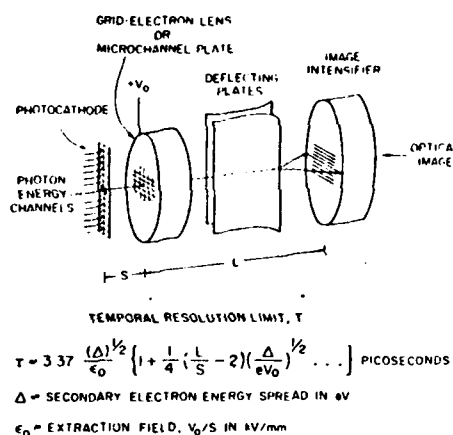 GRID-ELECTRON LENS
OR
MICROCHANNEL PLATE
+V₀
PHOTOCATHODE
DEFLECTING
PLATES
IMAGE
INTENSIFIER
OPTICAL
IMAGE
PHOTON
ENERGY
CHANNELS
S
L
TEMPORAL RESOLUTION LIMIT, T
T ≈ 3.37 (Δ)^1/2 / ε₀ {1 + 1/4 (L/S - 2)(Δ/eV₀)^1/2 ...} PICOSECONDS
Δ = SECONDARY ELECTRON ENERGY SPREAD IN eV
ε₀ = EXTRACTION FIELD, V₀/S IN kV/mm